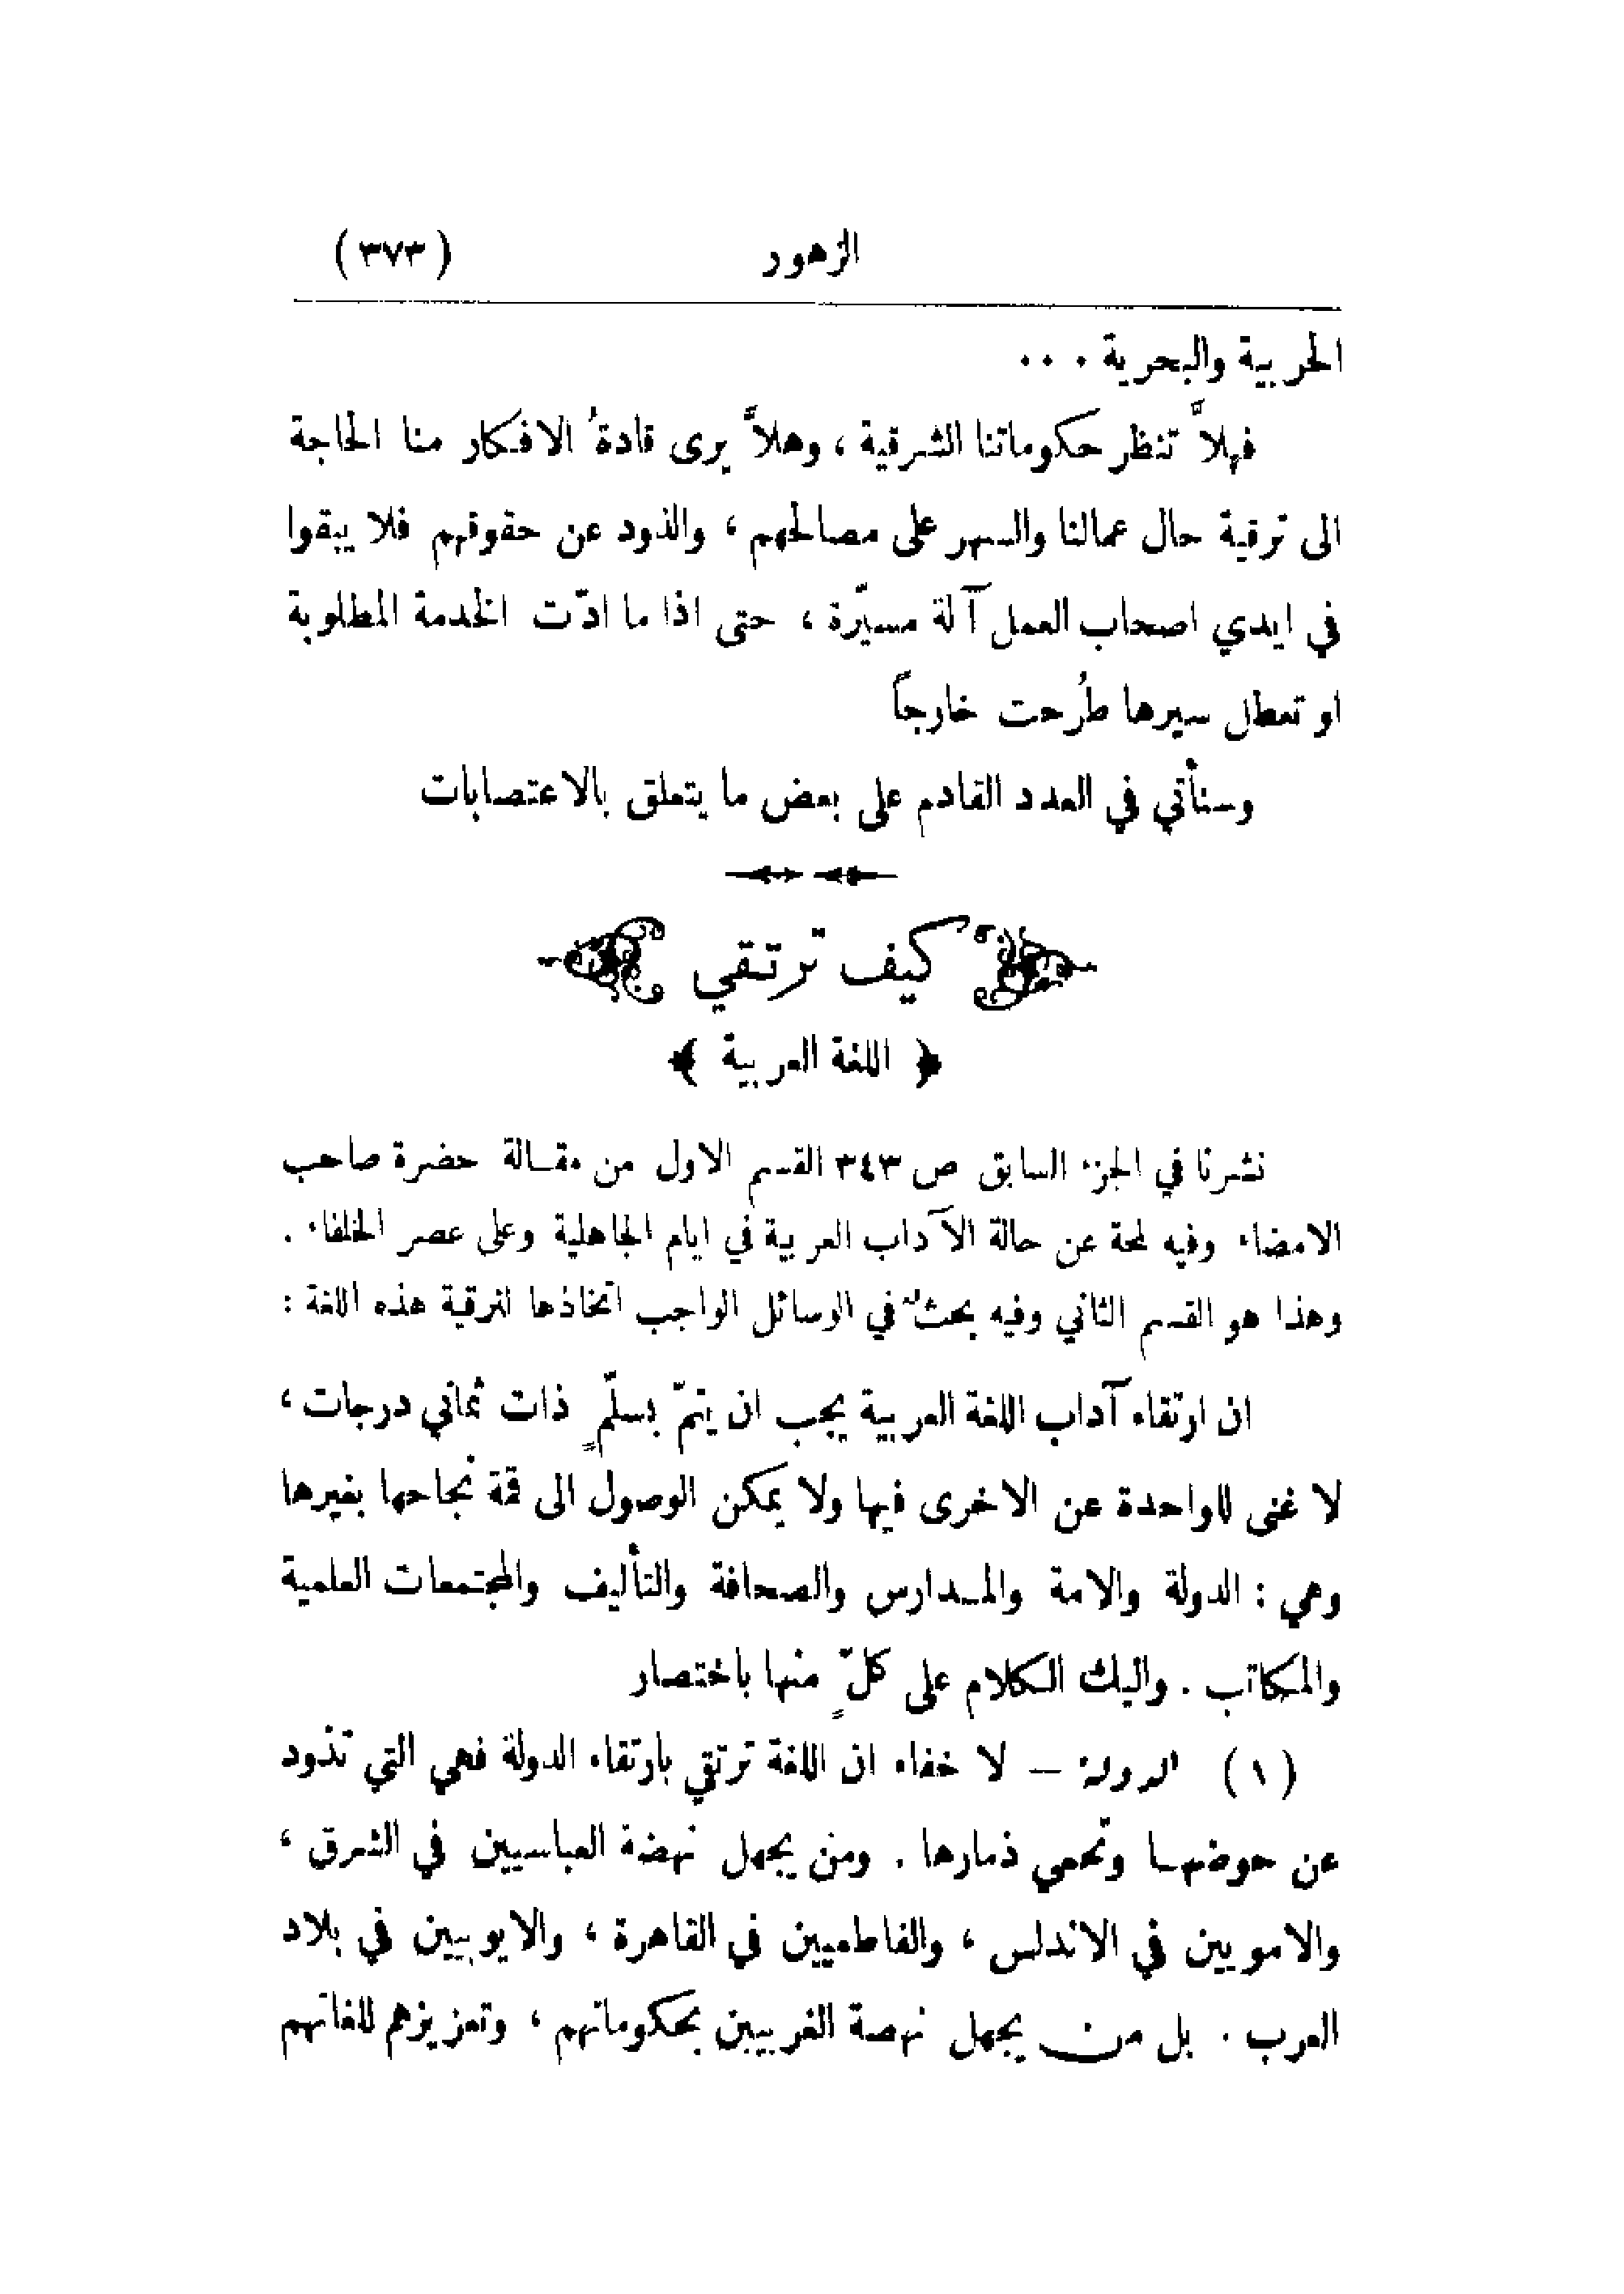 الزهور (٣٧٣)
الحربية والبحرية ...
فهلاَّ تنظر حكوماتنا الشرقية ، وهلاَّ يرى قادةُ الافكار منا الحاجة
الى ترقية حال عمالنا والسهر على مصالحهم ، والذود عن حقوقهم فلا يبقوا
في ايدي اصحاب العمل آلة مسيَّرة ، حتى اذا ما ادَّت الخدمة المطلوبة
او تعطل سيرها طُرحت خارجاً
وسنأتي في العدد القادم على بعض ما يتعلق بالاعتصابات
كيف ترتقي
﴿ اللغة العربية ﴾
نشرنا في الجزء السابق ص ٣٤٣ القسم الاول من مقالة حضرة صاحب
الامضاء وفيه لمحة عن حالة الآداب العربية في ايام الجاهلية وعلى عصر الخلفاء .
وهذا هو القسم الثاني وفيه بحثٌ في الوسائل الواجب اتخاذها لترقية هذه اللغة :
ان ارتقاء آداب اللغة العربية يجب ان يتمّ بسلّمٍ ذات ثماني درجات ،
لا غنى للواحدة عن الاخرى فيها ولا يمكن الوصول الى قمة نجاحها بغيرها
وهي : الدولة والامة والمدارس والصحافة والتأليف والمجتمعات العلمية
والمكاتب . واليك الكلام على كلّ ٍ منها باختصار
(١) الدولة – لا خفاء ان اللغة ترتقي بارتقاء الدولة فهي التي تذود
عن حوضها وتحمي ذمارها . ومن يجهل نهضة العباسيين في الشرق ،
والامويين في الاندلس ، والفاطميين في القاهرة ، والايوبيين في بلاد
العرب . بل من يجهل نهضة الغربيين بحكوماتهم ، وتعزيزهم للغاتهم